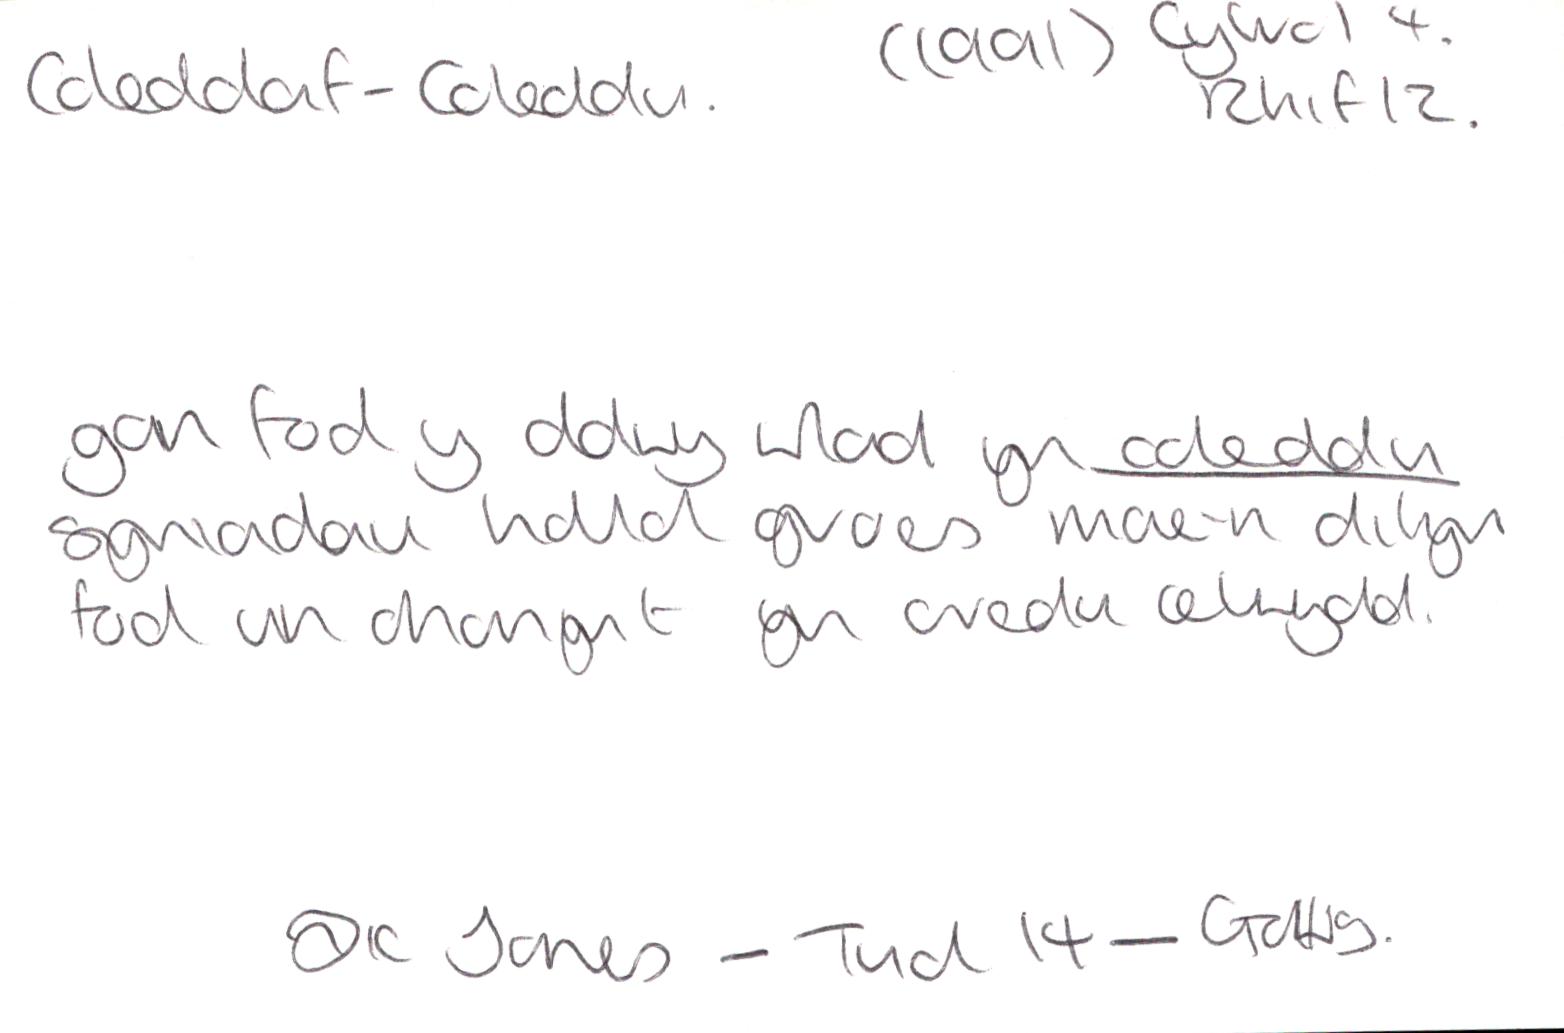 Coleddaf - Coleddu. (1991) Cyfrol 4.
Rhif 12.
gan fod y ddwy wlad yn coleddu
syniadau hollol groes mae-n dilyn
fod un ohonynt yn credu celwydd.
Dic Jones - Tud 14 - Golwg.